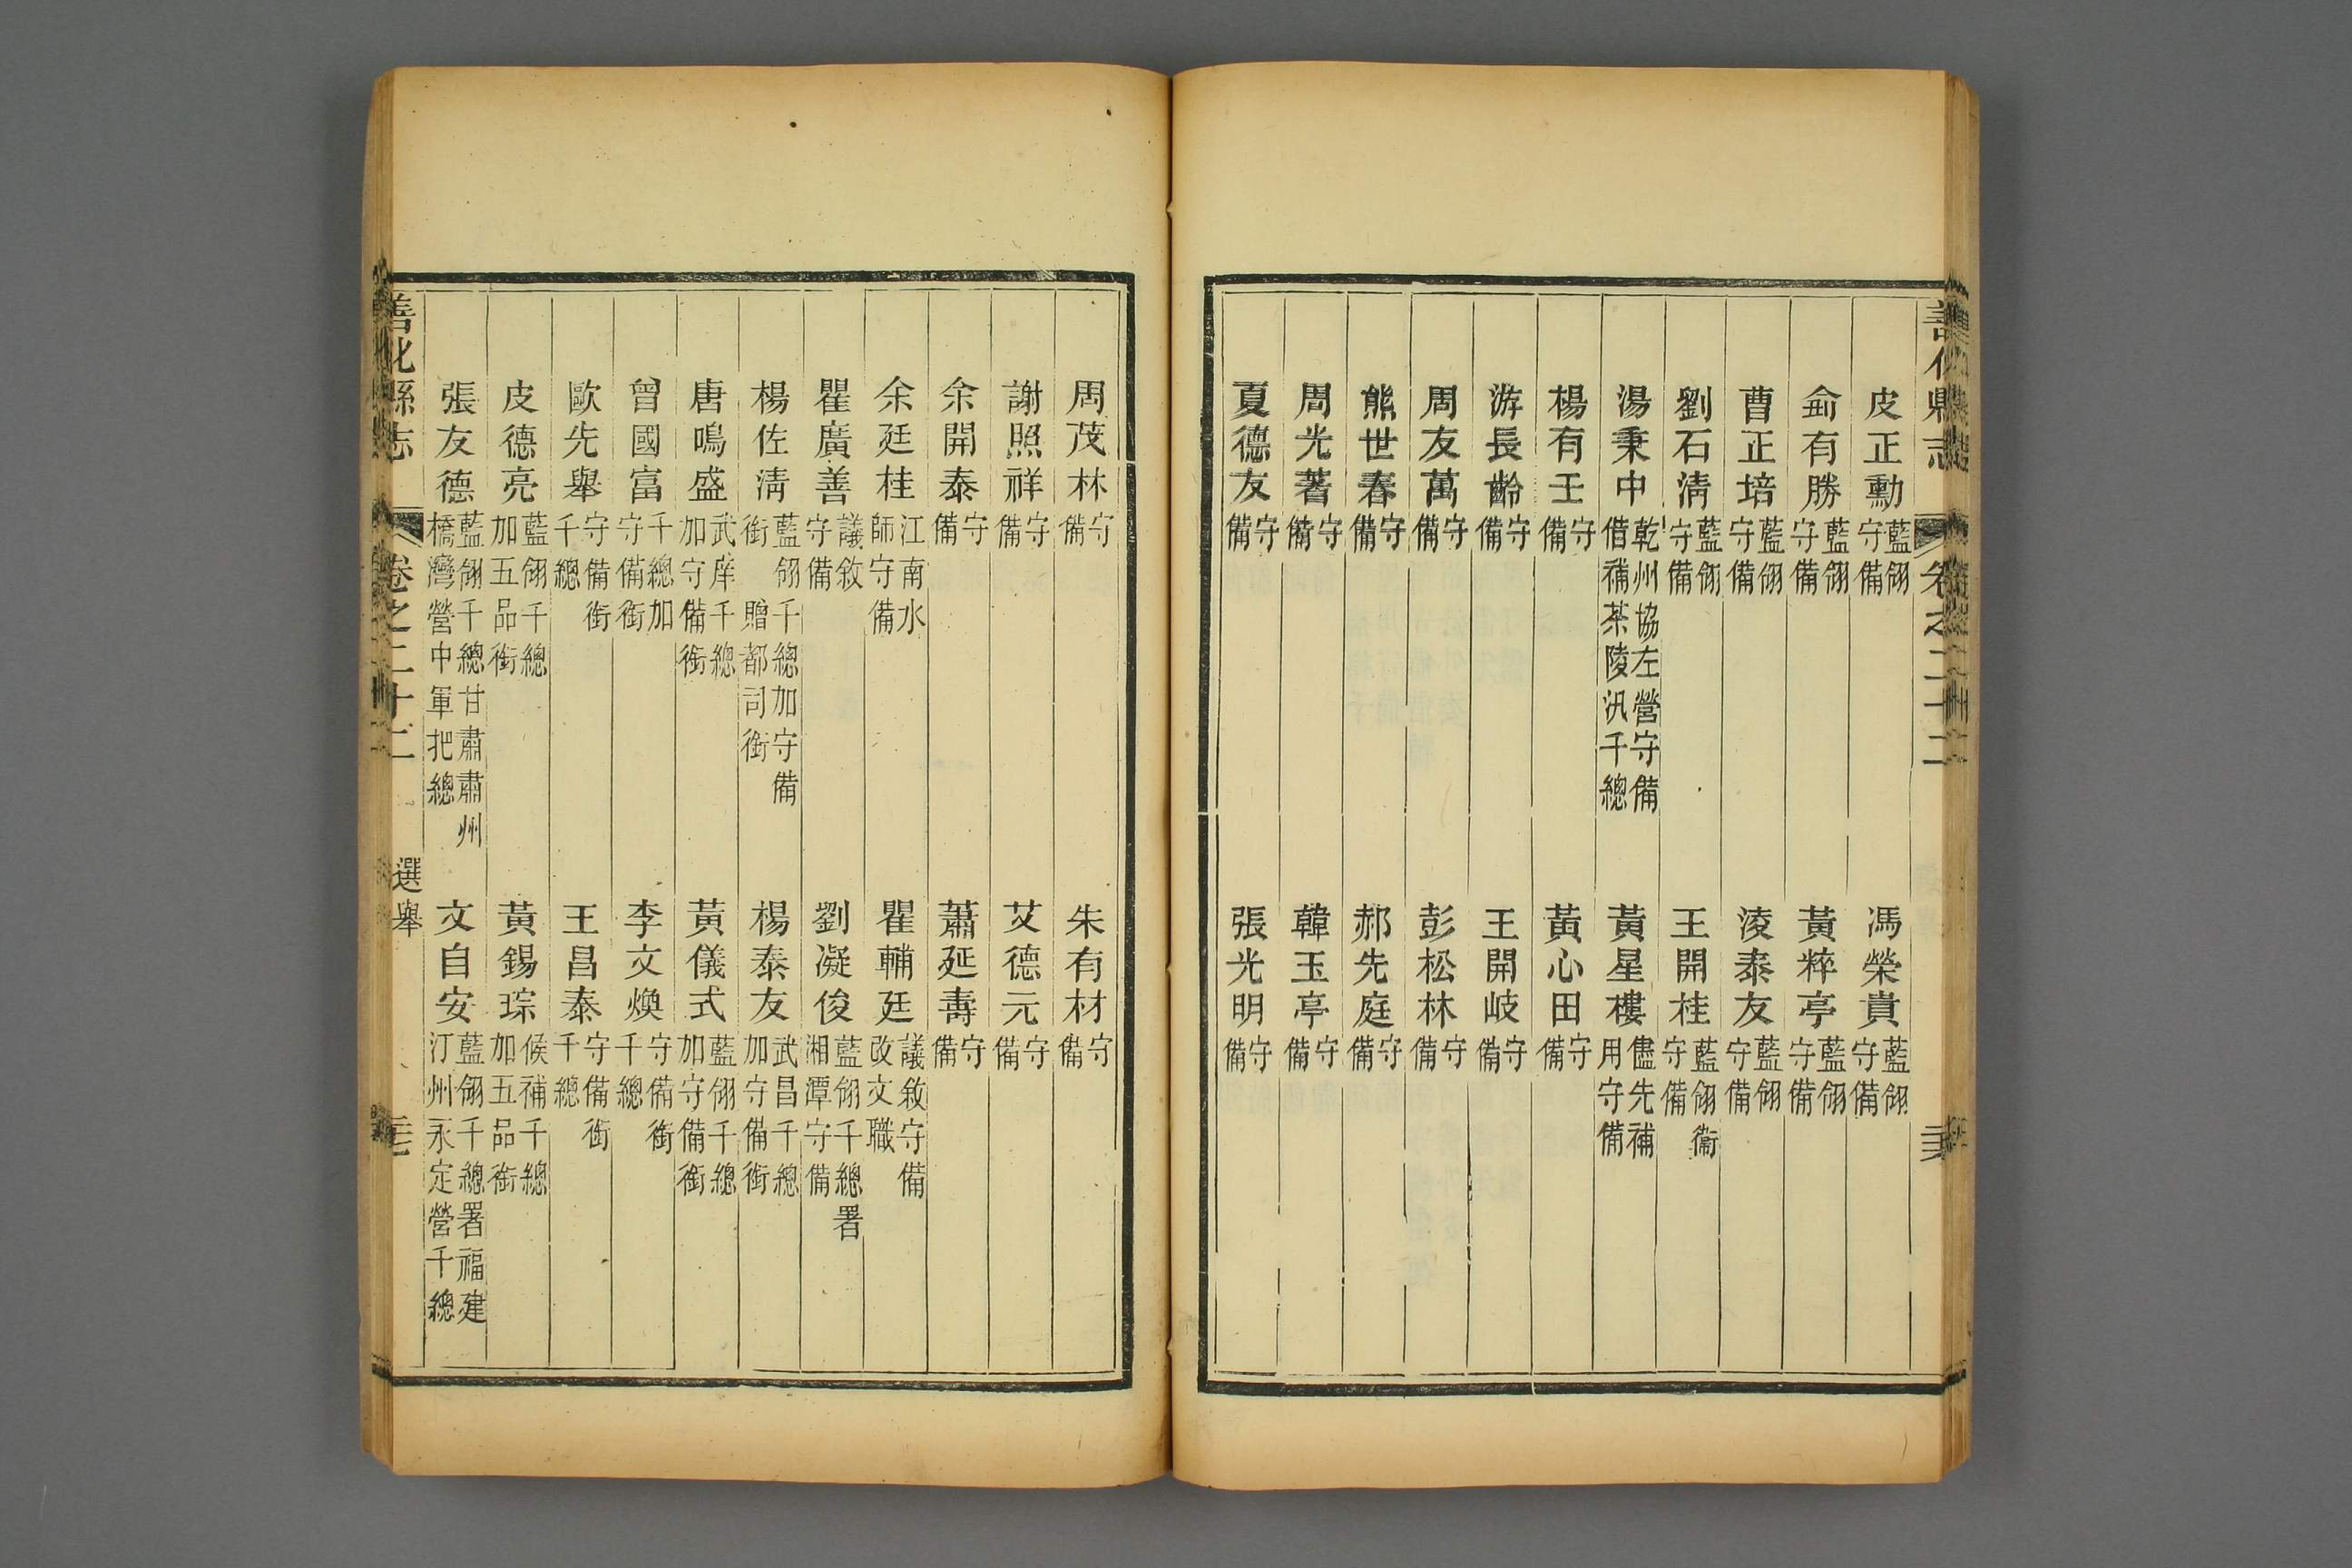 善化縣志 卷之二十二
皮正勳 藍翎守備 馮榮貴 藍翎守備
俞有勝 藍翎守備 黃粹亭 藍翎守備
曹正培 藍翎守備 淩泰友 藍翎守備
劉石清 藍翎守備 王開桂 藍翎衞守備
湯秉中 乾州協左營守備借補茶陵汛千總 黃星樓 儘先補用守備
楊有玉 守備 黃心田 守備
游長齡 守備 王開岐 守備
周友萬 守備 彭松林 守備
熊世春 守備 郝先庭 守備
周光著 守備 韓玉亭 守備
夏德友 守備 張光明 守備
周茂林 守備 朱有材 守備
謝照祥 守備 艾德元 守備
余開泰 守備 蕭延壽 守備
余廷桂 江南水師守備 瞿輔廷 議敘守備改文職
瞿廣善 議敘守備 劉凝俊 藍翎千總署湘潭守備
楊佐淸 藍翎千總加守備銜贈都司銜 楊泰友 武昌千總加守備銜
唐鳴盛 武庠千總加守備銜 黃儀式 藍翎千總加守備銜
曾國富 千總加守備銜 李文煥 守備銜千總
歐先舉 守備銜千總 王昌泰 守備銜千總
皮德亮 藍翎千總加五品銜 黃錫琮 候補千總加五品銜
張友德 藍翎千總甘肅肅州橋灣營中軍把總 文自安 藍翎千總署福建汀州永定營千總
善化縣志 卷之二十二 選舉